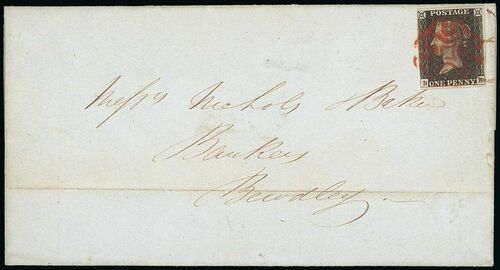 POSTAGE
ONE PENNY
Messrs Nichols & Baker
Bankers
Bewdley
35